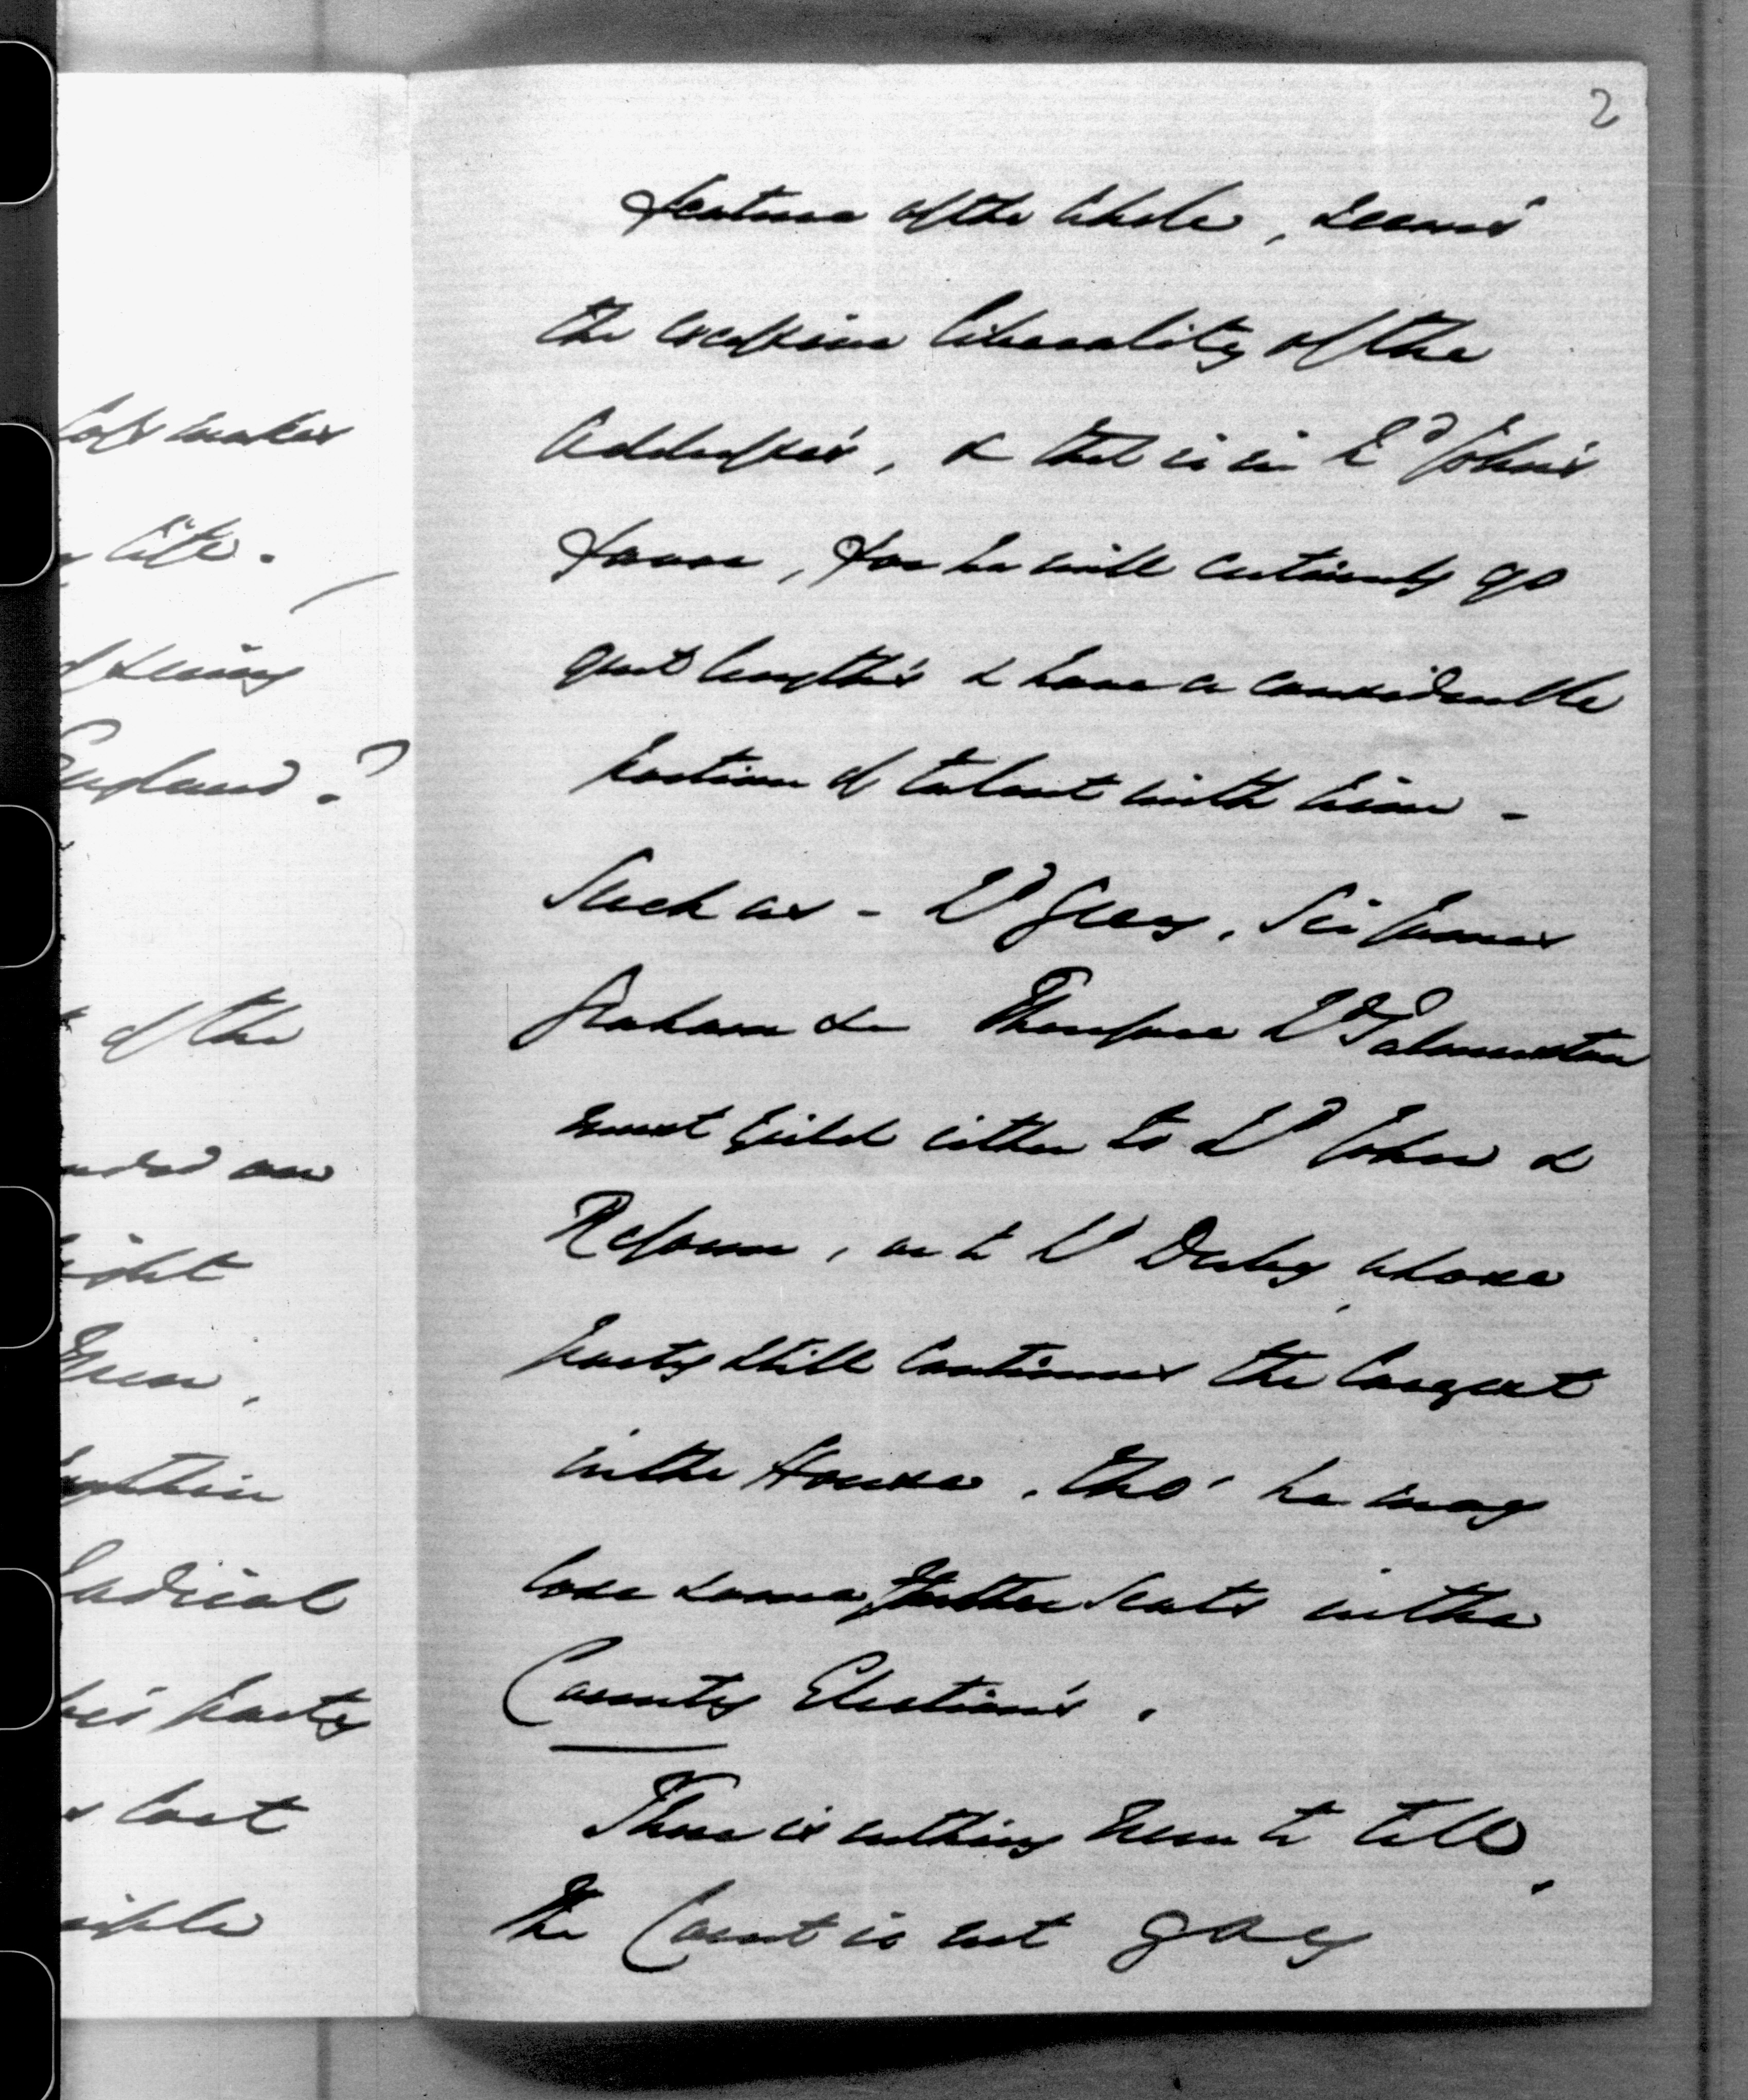 makes
life.
seeing
England.?
of the
ended an
Radical
his party
lost
2
feature of the whole, seem's
the excessive liberality of the
Addresses', & that is in Ld John's
favor, for he will certainly go
great length's & have a considerable
portion of talent with him -
Such as - Ld Grey, Sir James
Graham &c Therefore Ld Palmerston
must yield either to Ld John &
Reform, or to Ld Derby whose
party still continues the largest
in the House, tho' he may
lose some further seats in the
County Election's.
There is nothing new to tell,
The Court is not gay